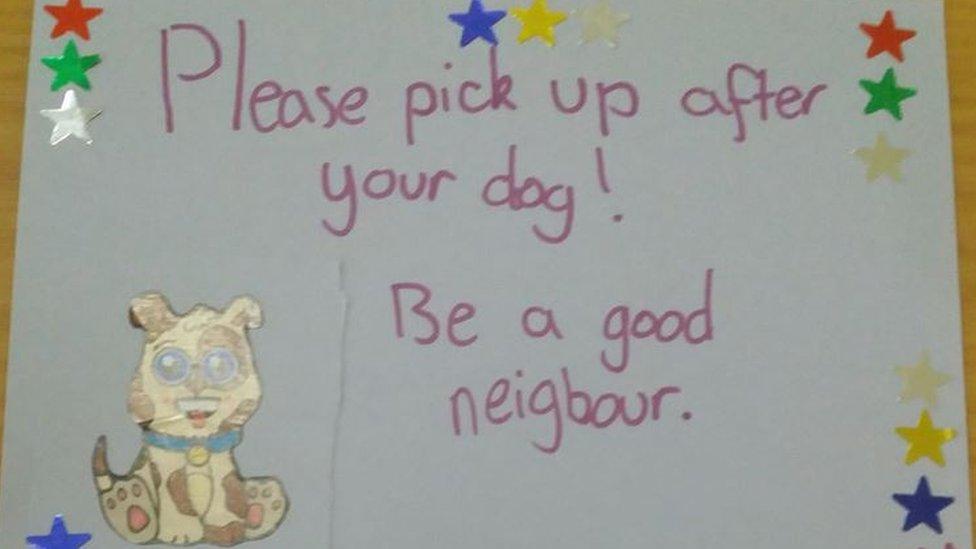 Please pick up after
your dog!
Be a good
neigbour.